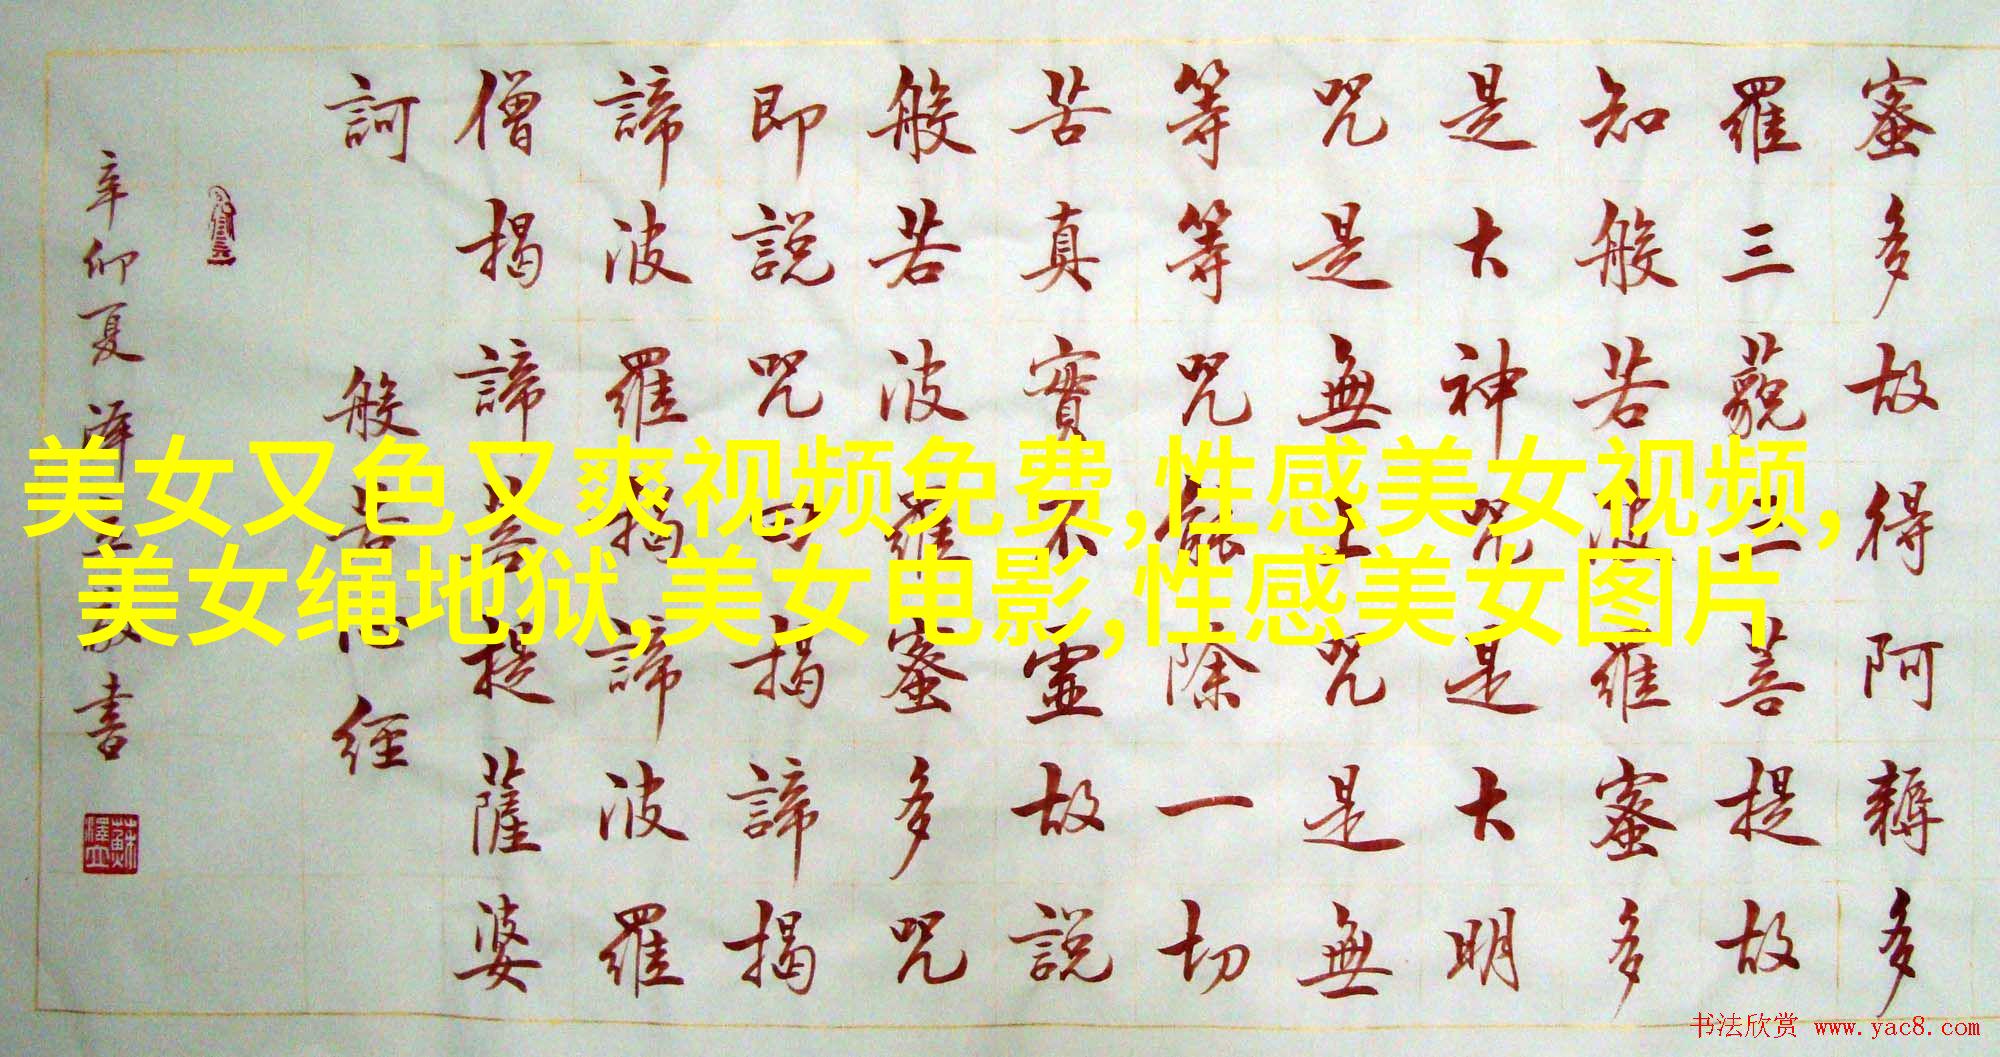 蜜多故得阿耨多
羅三藐三菩提故
知般若波羅蜜多
是大神咒是大明
咒是無上咒是無
等等咒能除一切
苦真實不虛故說
般若波羅蜜多咒
即說咒曰揭諦揭
諦波羅揭諦波羅
僧揭諦菩提薩婆
訶 般若心經
辛卯夏澤立敬書
美女又色又爽视频免费,性感美女视频,
美女绳地狱,美女电影,性感美女图片
书法欣赏 www.yac8.com